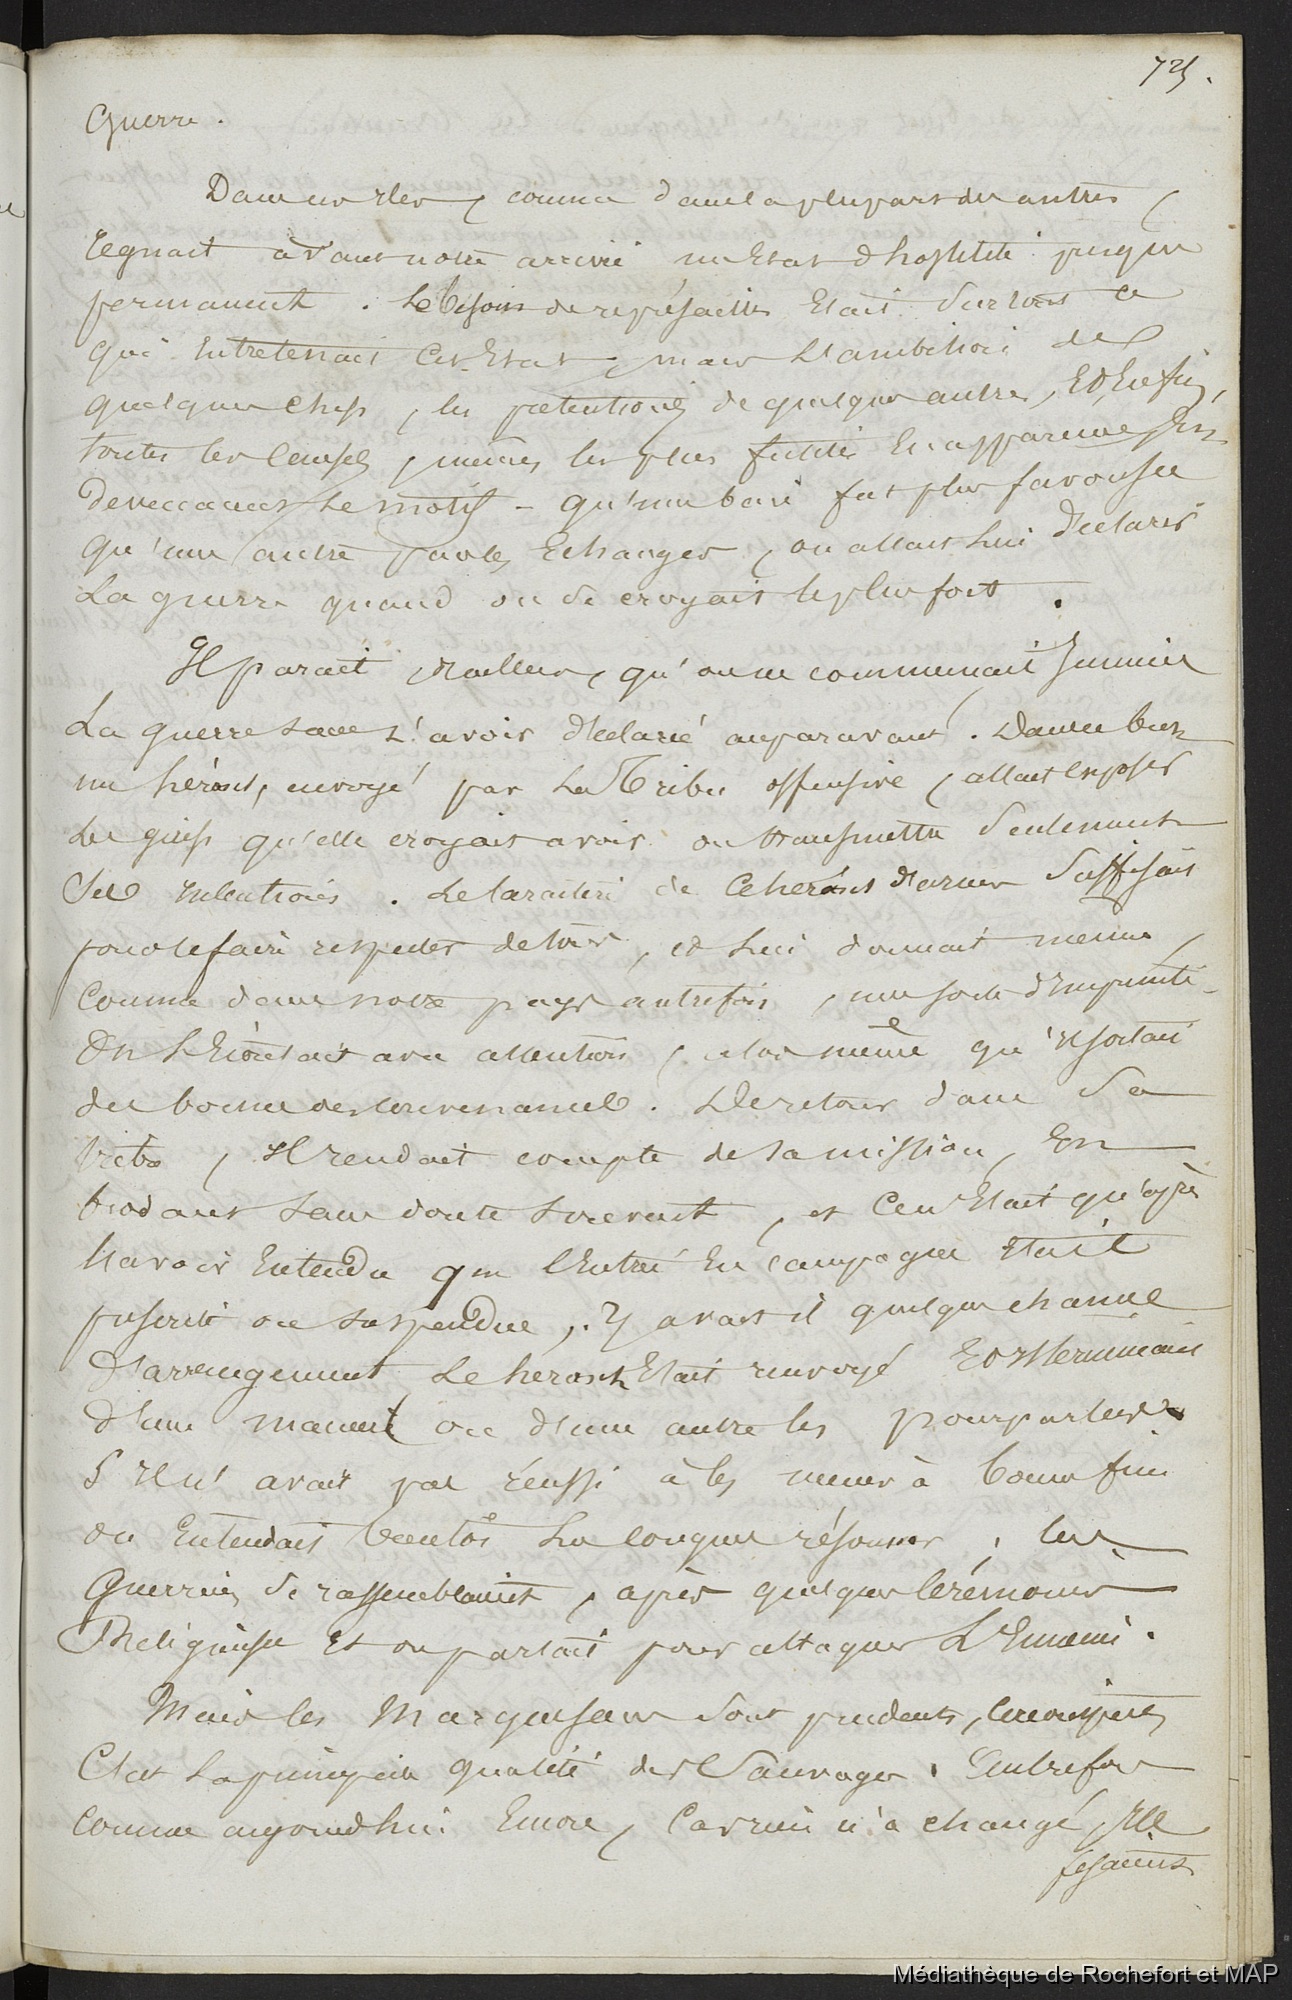 725.
Guerre.
Dans ces iles, comme dans la plupart des autres,
regnait avant notre arrivée un Etat d'hostilité presque
permanent. Le besoin de représailles Etait surtout ce
qui Entretenait cet Etat, mais L'ambition de
quelques chefs, les prétentions de quelques autres, Et Enfin,
toutes les causes, mêmes les plus futiles En apparence, En
devenaient Le motif - qu'une baie fut plus favorisée
qu'une autre par les Echanges, on allait Lui déclarer
La guerre quand on se croyait le plus fort.
Il parait, d'ailleurs, qu'on ne commencait Jammais
La guerre sans L'avoir déclaré auparavant. Dans ce but
un héraut, envoyé par La Tribu offensive, allait exposer
les griefs qu'elle croyait avoir ou transmettre Seulement
Ses intentions. Le caractère de ce héraut d'armes Suffisait
pour le faire respecter de tous, et Lui donnait même,
comme dans notre pays autrefois, une sorte d'Impunité.
On L'Ecoutait avec attention, alors même qu'il sortait
des bornes des convenances. De retour dans Sa
tribu, Il rendait compte de sa mission, En
brodant sans doute souvent, et ce n'Etait qu'après
L'avoir Entendu que l'Entrée En campagne Etait
prescrite ou suspendue, Y avait il quelque chance
d'arrengement Le heraut Etait renvoyé Et Il terminait
d'une manière ou d'une autre les pourparlers
S'Il n' avait pas réussi à les mener à bonne fin
on Entendait bientôt La conque résonner, les
Guerriers Se rassemblaient, après quelques Cérémonies
Religieuse Et on partait pour attaquer L'Ennemi.
Mais les Marquisans sont prudents, circonspects
C'est La principale qualité des Sauvages. Autrefois
comme aujourd'hui Encore, Car rien n'a changé, Ils
fesaient
Médiathèque de Rochefort et MAP